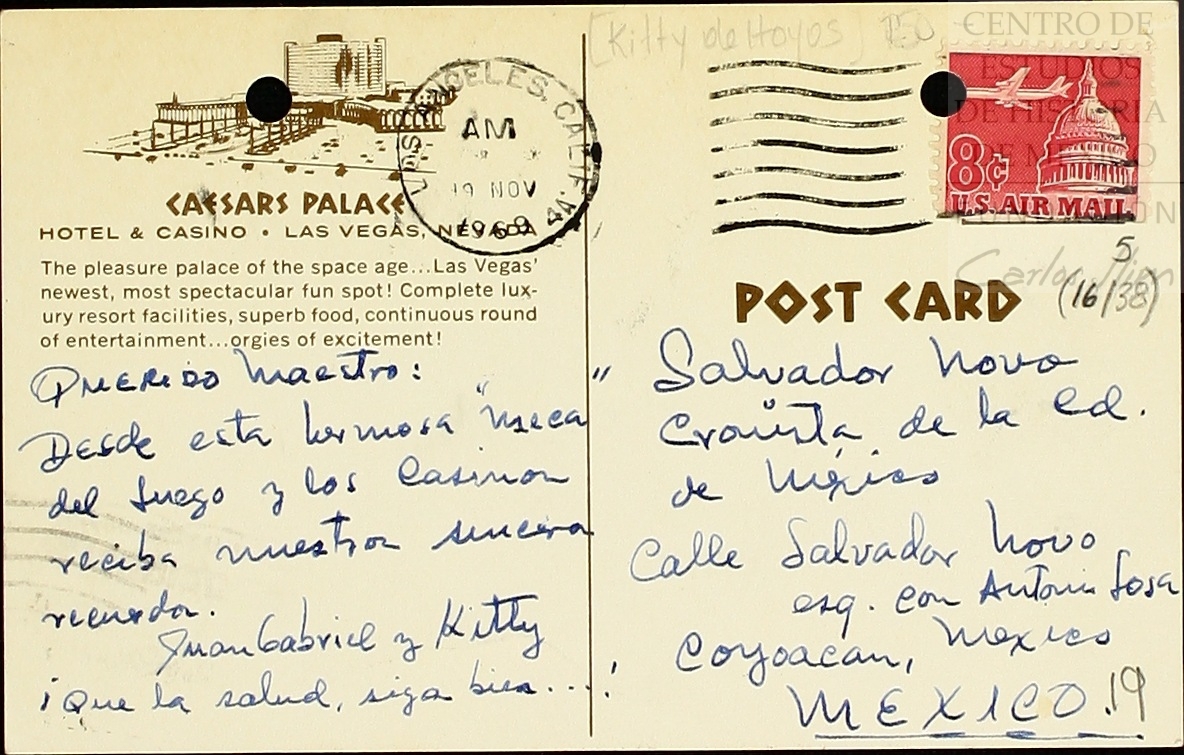 [Kitty de Hoyos] 150
CENTRO DE
ESTUDIOS
DE HISTORIA
DE MEXICO
LOS ANGELES, CALIF.
AM
19 NOV
1969
4A
8¢
U.S. AIR MAIL
CAESARS PALACE
HOTEL & CASINO • LAS VEGAS, NEVADA
The pleasure palace of the space age...Las Vegas'
newest, most spectacular fun spot! Complete lux-
ury resort facilities, superb food, continuous round
of entertainment...orgies of excitement!
Querido Maestro:
Desde esta hermosa "meca
del Juego y los Casinos"
reciba nuestros sinceros
recuerdos.
Juan Gabriel y Kitty
¡Que la salud, siga bien...!
5
POST CARD
(16/38)
Salvador Novo
Cronista de la Cd.
de México
Calle Salvador Novo
esq. con Antonio Sosa
Coyoacan, Mexico
MEXICO.19